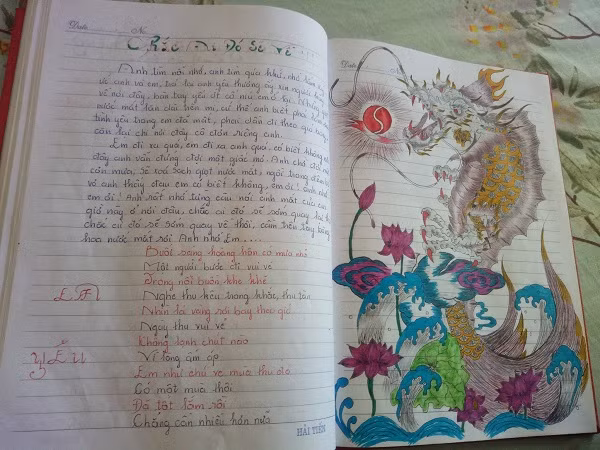 Date No
Chắc Ai Đó Sẽ Về
Anh tìm nỗi nhớ, anh tìm quá khứ, nhớ lắm
về anh và em, trả lại anh yêu thương ấy, xin người hãy
về nơi đây, bàn tay yếu ớt cố níu em ở lại
nước mắt lăn dài trên mi, cứ thế anh biết phải làm
tình yêu trong em đã mất, phai dần đi theo gió bay
còn lại chi nơi đây cô đơn riêng anh.
Em đi xa quá, em đi xa anh quá, có biết không nơi
đây anh vẫn đứng đợi một giấc mơ. Anh chờ đợi một
cơn mưa, sẽ xoá sạch giọt nước mắt, ngồi trong đêm
vơ anh thấy đau em có biết không, em ơi! anh nhớ
em ơi! Anh rất nhớ từng câu nói anh mắt của em
giờ này ở nơi đâu, chắc ai đó sẽ sớm quay lại
chắc ai đó sẽ sớm quay về thôi, cầm trên tay bông
hoa nước mắt rơi Anh nhớ Em....
Buổi sáng hoàng hôn có mùa nhớ
Một người bước đi vui vẻ
Trong nỗi buồn khe khẽ
Nghe thu kêu trong khắc, thu tàn
Nhìn lá vàng rơi bay theo gió
Ngày thu vui vẻ
Không lạnh chút nào
Về lòng ấm áp
Em như chú ve mùa thu đó
Có một mùa thôi
Đã tột lắm rồi
Chẳng cần nhiều hơn nữa
YÊU
HẢI TIẾN
Date